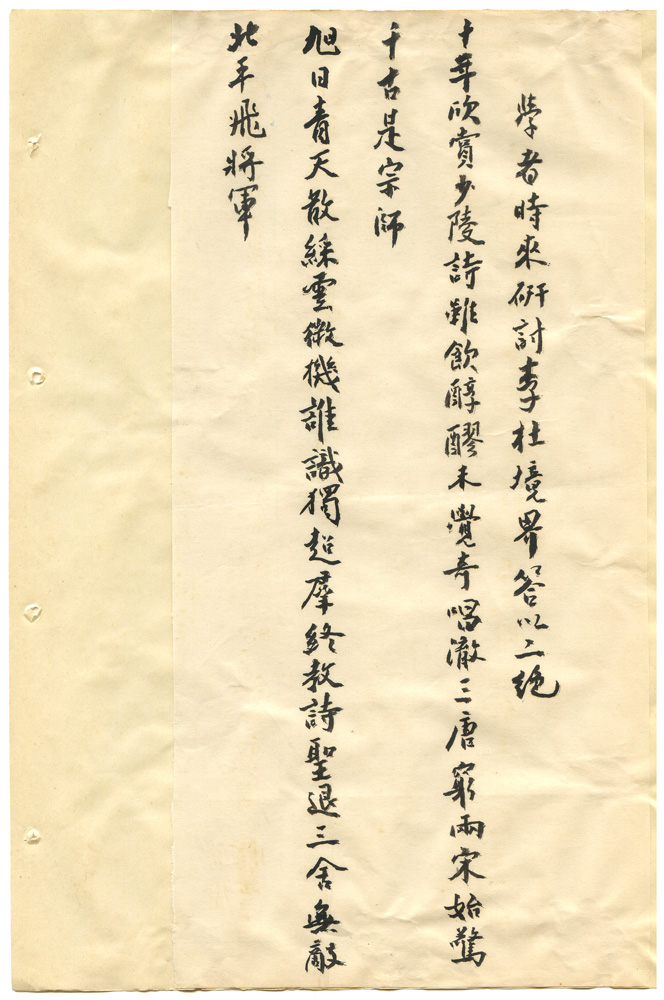 學者時來研討李杜境界答以二絕
十年欣賞少陵詩難飲醇醪未覺奇唱澈三唐窮兩宋始驚
千古是宗師
旭日青天散綵雲微機誰識獨超羣終教詩聖退三舍無敵
北平飛將軍